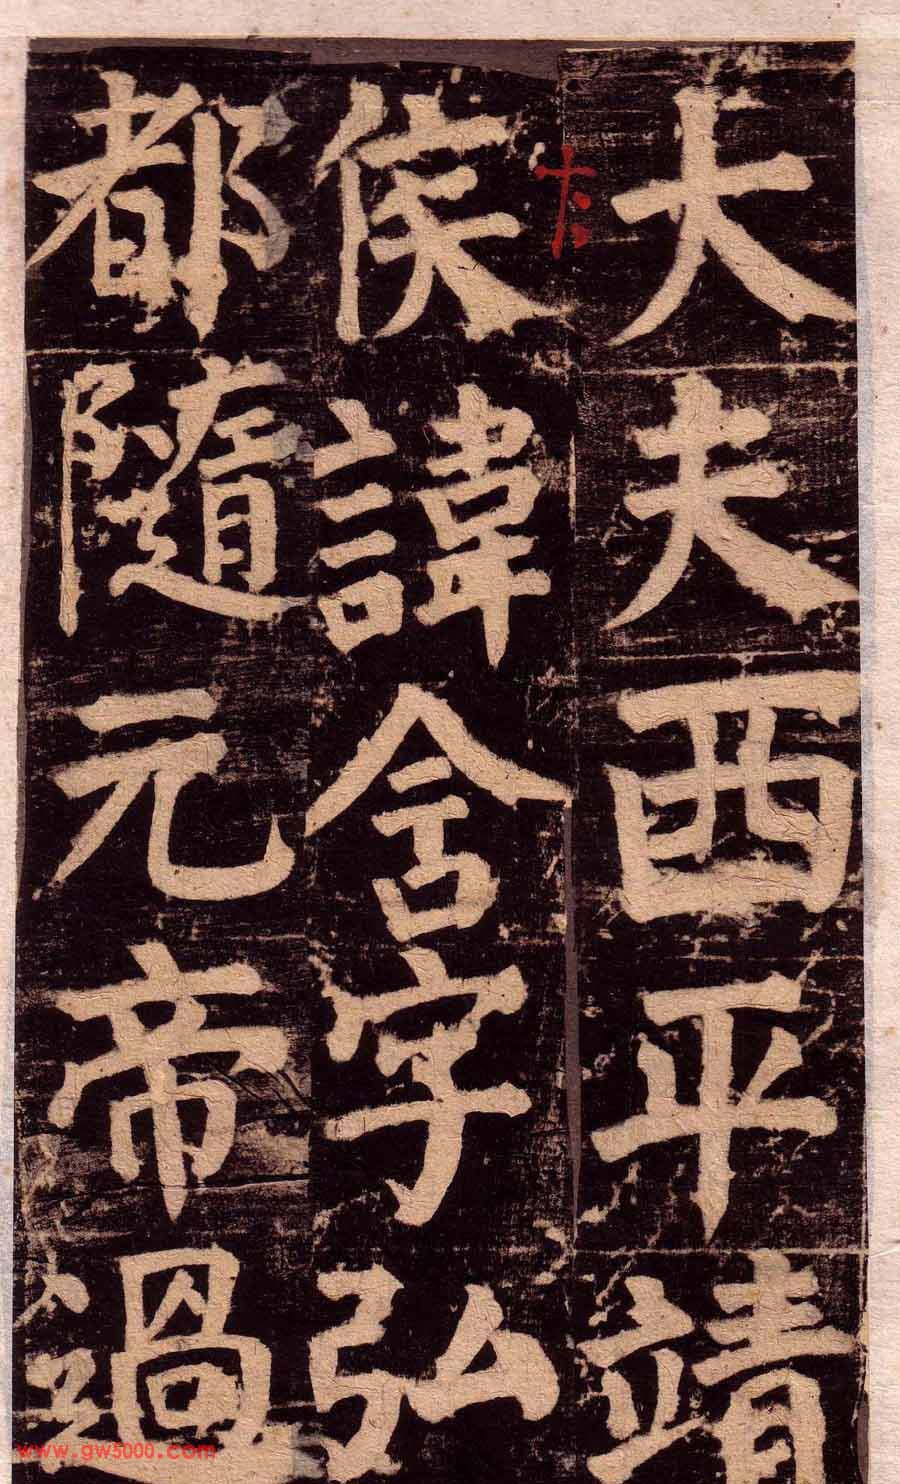 大夫西平靖
侯諱含字弘
都隨元帝過
www.gw5000.com